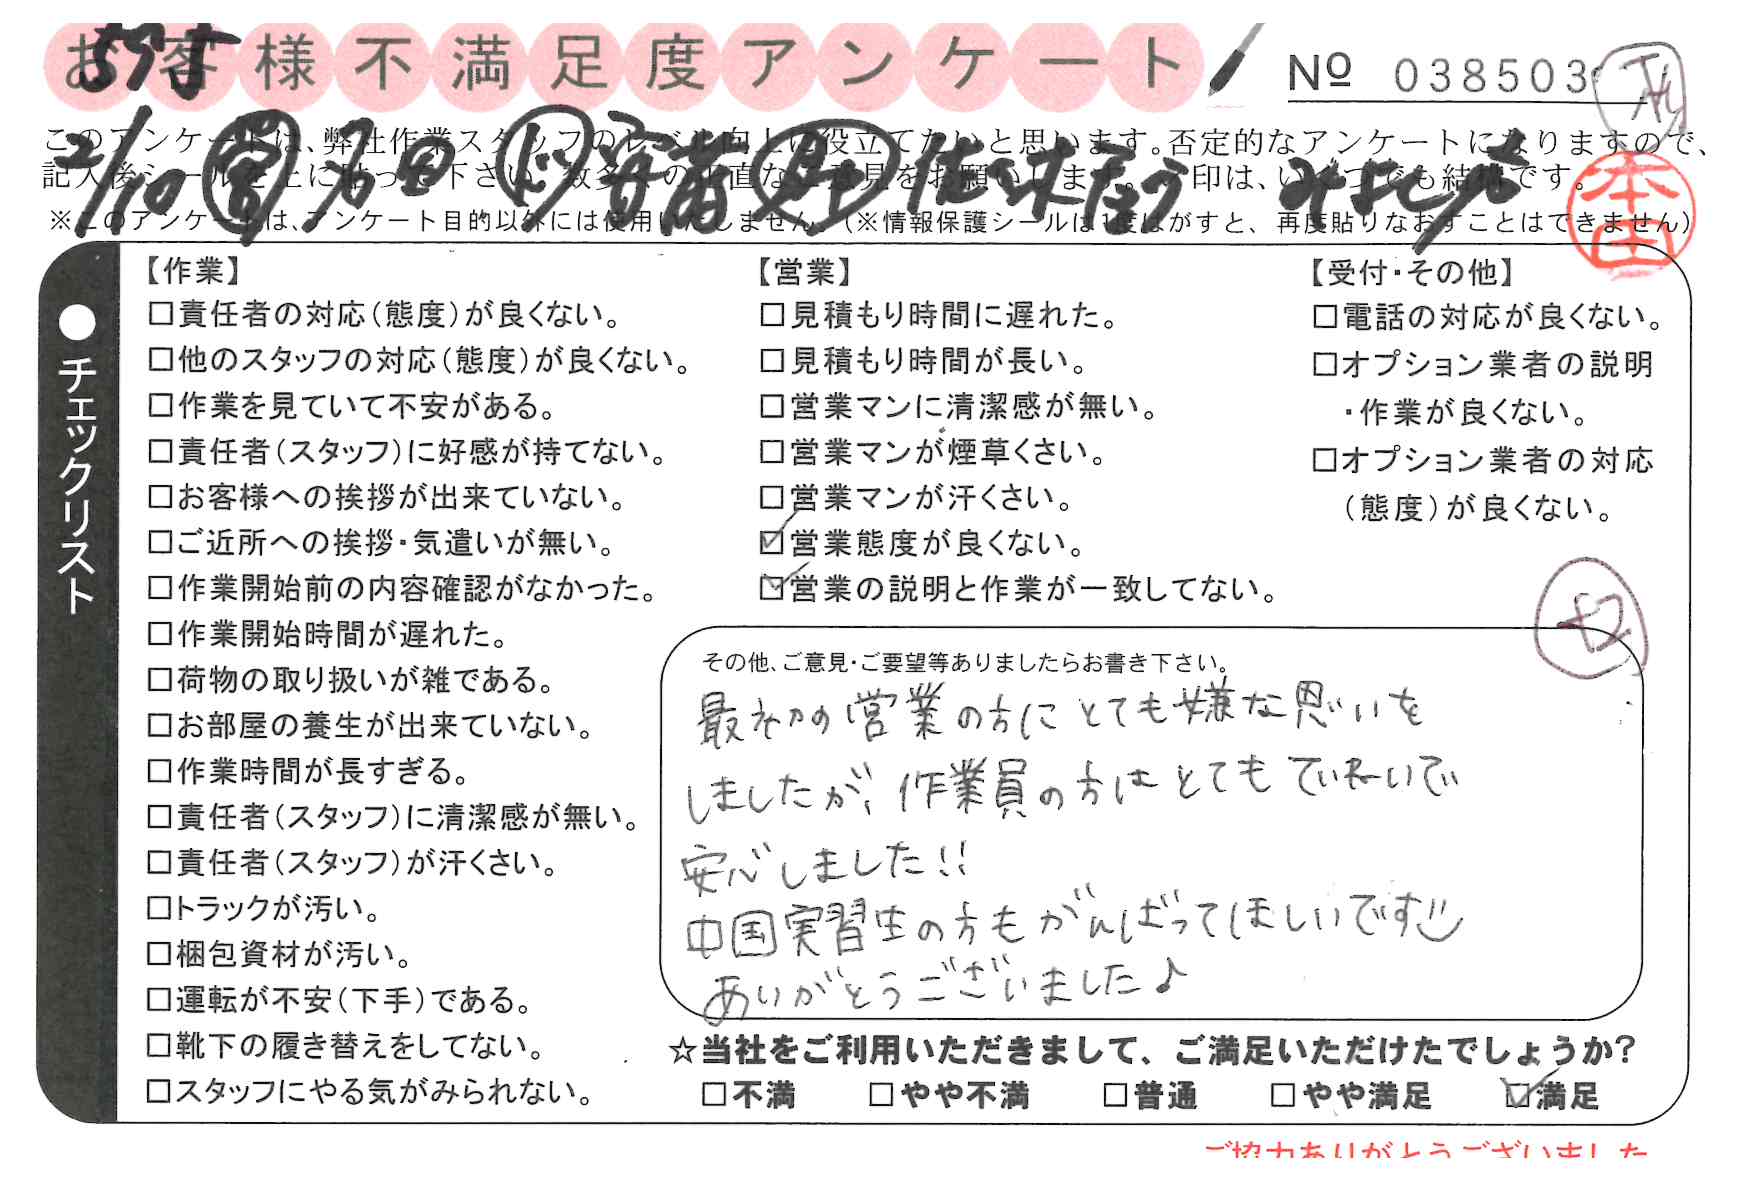 お客様不満足度アンケート
№ 038503
2/10
このアンケートは、弊社作業スタッフのレベル向上に役立てたいと思います。否定的なアンケートになりますので、
記入後シールを上に貼って下さい。数多くの正直なご意見をお願いします。✓印は、いくつでも結構です。
※このアンケートは、アンケート目的以外には使用いたしません。(※情報保護シールは1度はがすと、再度貼りなおすことはできません)
本田
●チェックリスト
【作業】
□責任者の対応(態度)が良くない。
□他のスタッフの対応(態度)が良くない。
□作業を見ていて不安がある。
□責任者(スタッフ)に好感が持てない。
□お客様への挨拶が出来ていない。
□ご近所への挨拶・気遣いが無い。
□作業開始前の内容確認がなかった。
□作業開始時間が遅れた。
□荷物の取り扱いが雑である。
□お部屋の養生が出来ていない。
□作業時間が長すぎる。
□責任者(スタッフ)に清潔感が無い。
□責任者(スタッフ)が汗くさい。
□トラックが汚い。
□梱包資材が汚い。
□運転が不安(下手)である。
□靴下の履き替えをしてない。
□スタッフにやる気がみられない。
【営業】
□見積もり時間に遅れた。
□見積もり時間が長い。
□営業マンに清潔感が無い。
□営業マンが煙草くさい。
□営業マンが汗くさい。
☑営業態度が良くない。
☑営業の説明と作業が一致してない。
【受付・その他】
□電話の対応が良くない。
□オプション業者の説明
・作業が良くない。
□オプション業者の対応
(態度)が良くない。
その他、ご意見・ご要望等ありましたらお書き下さい。
最初の営業の方にとても嫌な思いを
しましたが、作業員の方はとてもていねいで
安心しました!!
中国実習生の方もがんばってほしいです
ありがとうございました♪
☆当社をご利用いただきまして、ご満足いただけたでしょうか?
□不満 □やや不満 □普通 □やや満足 ☑満足
ご協力ありがとうございました